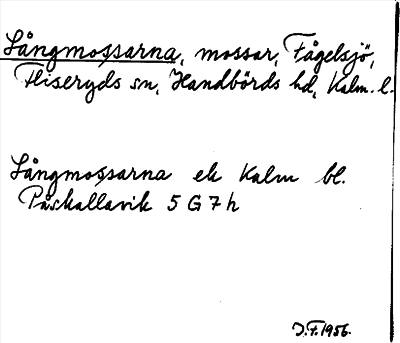 Långmossarna, mossar, Fågelsjö,
Fliseryds sn, Handbörds hd, Kalm. l.
Långmossarna ek Kalm bl.
Påskallavik 5 G 7 h
J. F. 1956.